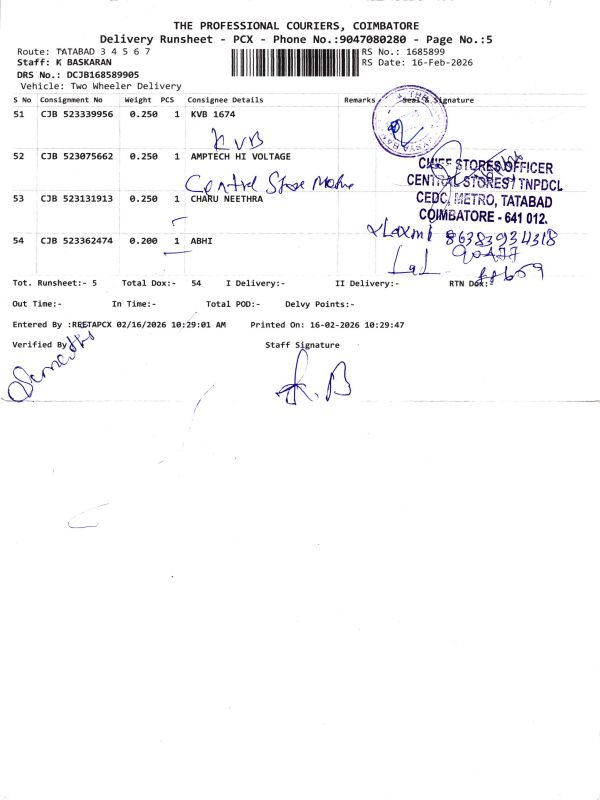 THE PROFESSIONAL COURIERS, COIMBATORE
Delivery Runsheet - PCX - Phone No.:9047080280 - Page No.:5
Route: TATABAD 3 4 5 6 7
RS No.: 1685899
Staff: K BASKARAN
RS Date: 16-Feb-2026
DRS No.: DCJB168589905
Vehicle: Two Wheeler Delivery
S No Consignment No Weight PCS Consignee Details Remarks Seal & Signature
51 CJB 523339956 0.250 1 KVB 1674
KVB
52 CJB 523075662 0.250 1 AMPTECH HI VOLTAGE
Central Store
CHIEF STORES OFFICER
CENTRAL STORES / TNPDCL
CEDC, METRO, TATABAD
COIMBATORE - 641 012.
53 CJB 523131913 0.250 1 CHARU NEETHRA
Laxmi 8638393 4318
54 CJB 523362474 0.200 1 ABHI
Lal
Tot. Runsheet:- 5 Total Dox:- 54 I Delivery:- II Delivery:- RTN Dox:-
Out Time:- In Time:- Total POD:- Delvy Points:-
Entered By :REETAPCX 02/16/2026 10:29:01 AM Printed On: 16-02-2026 10:29:47
Verified By
Staff Signature
K. B